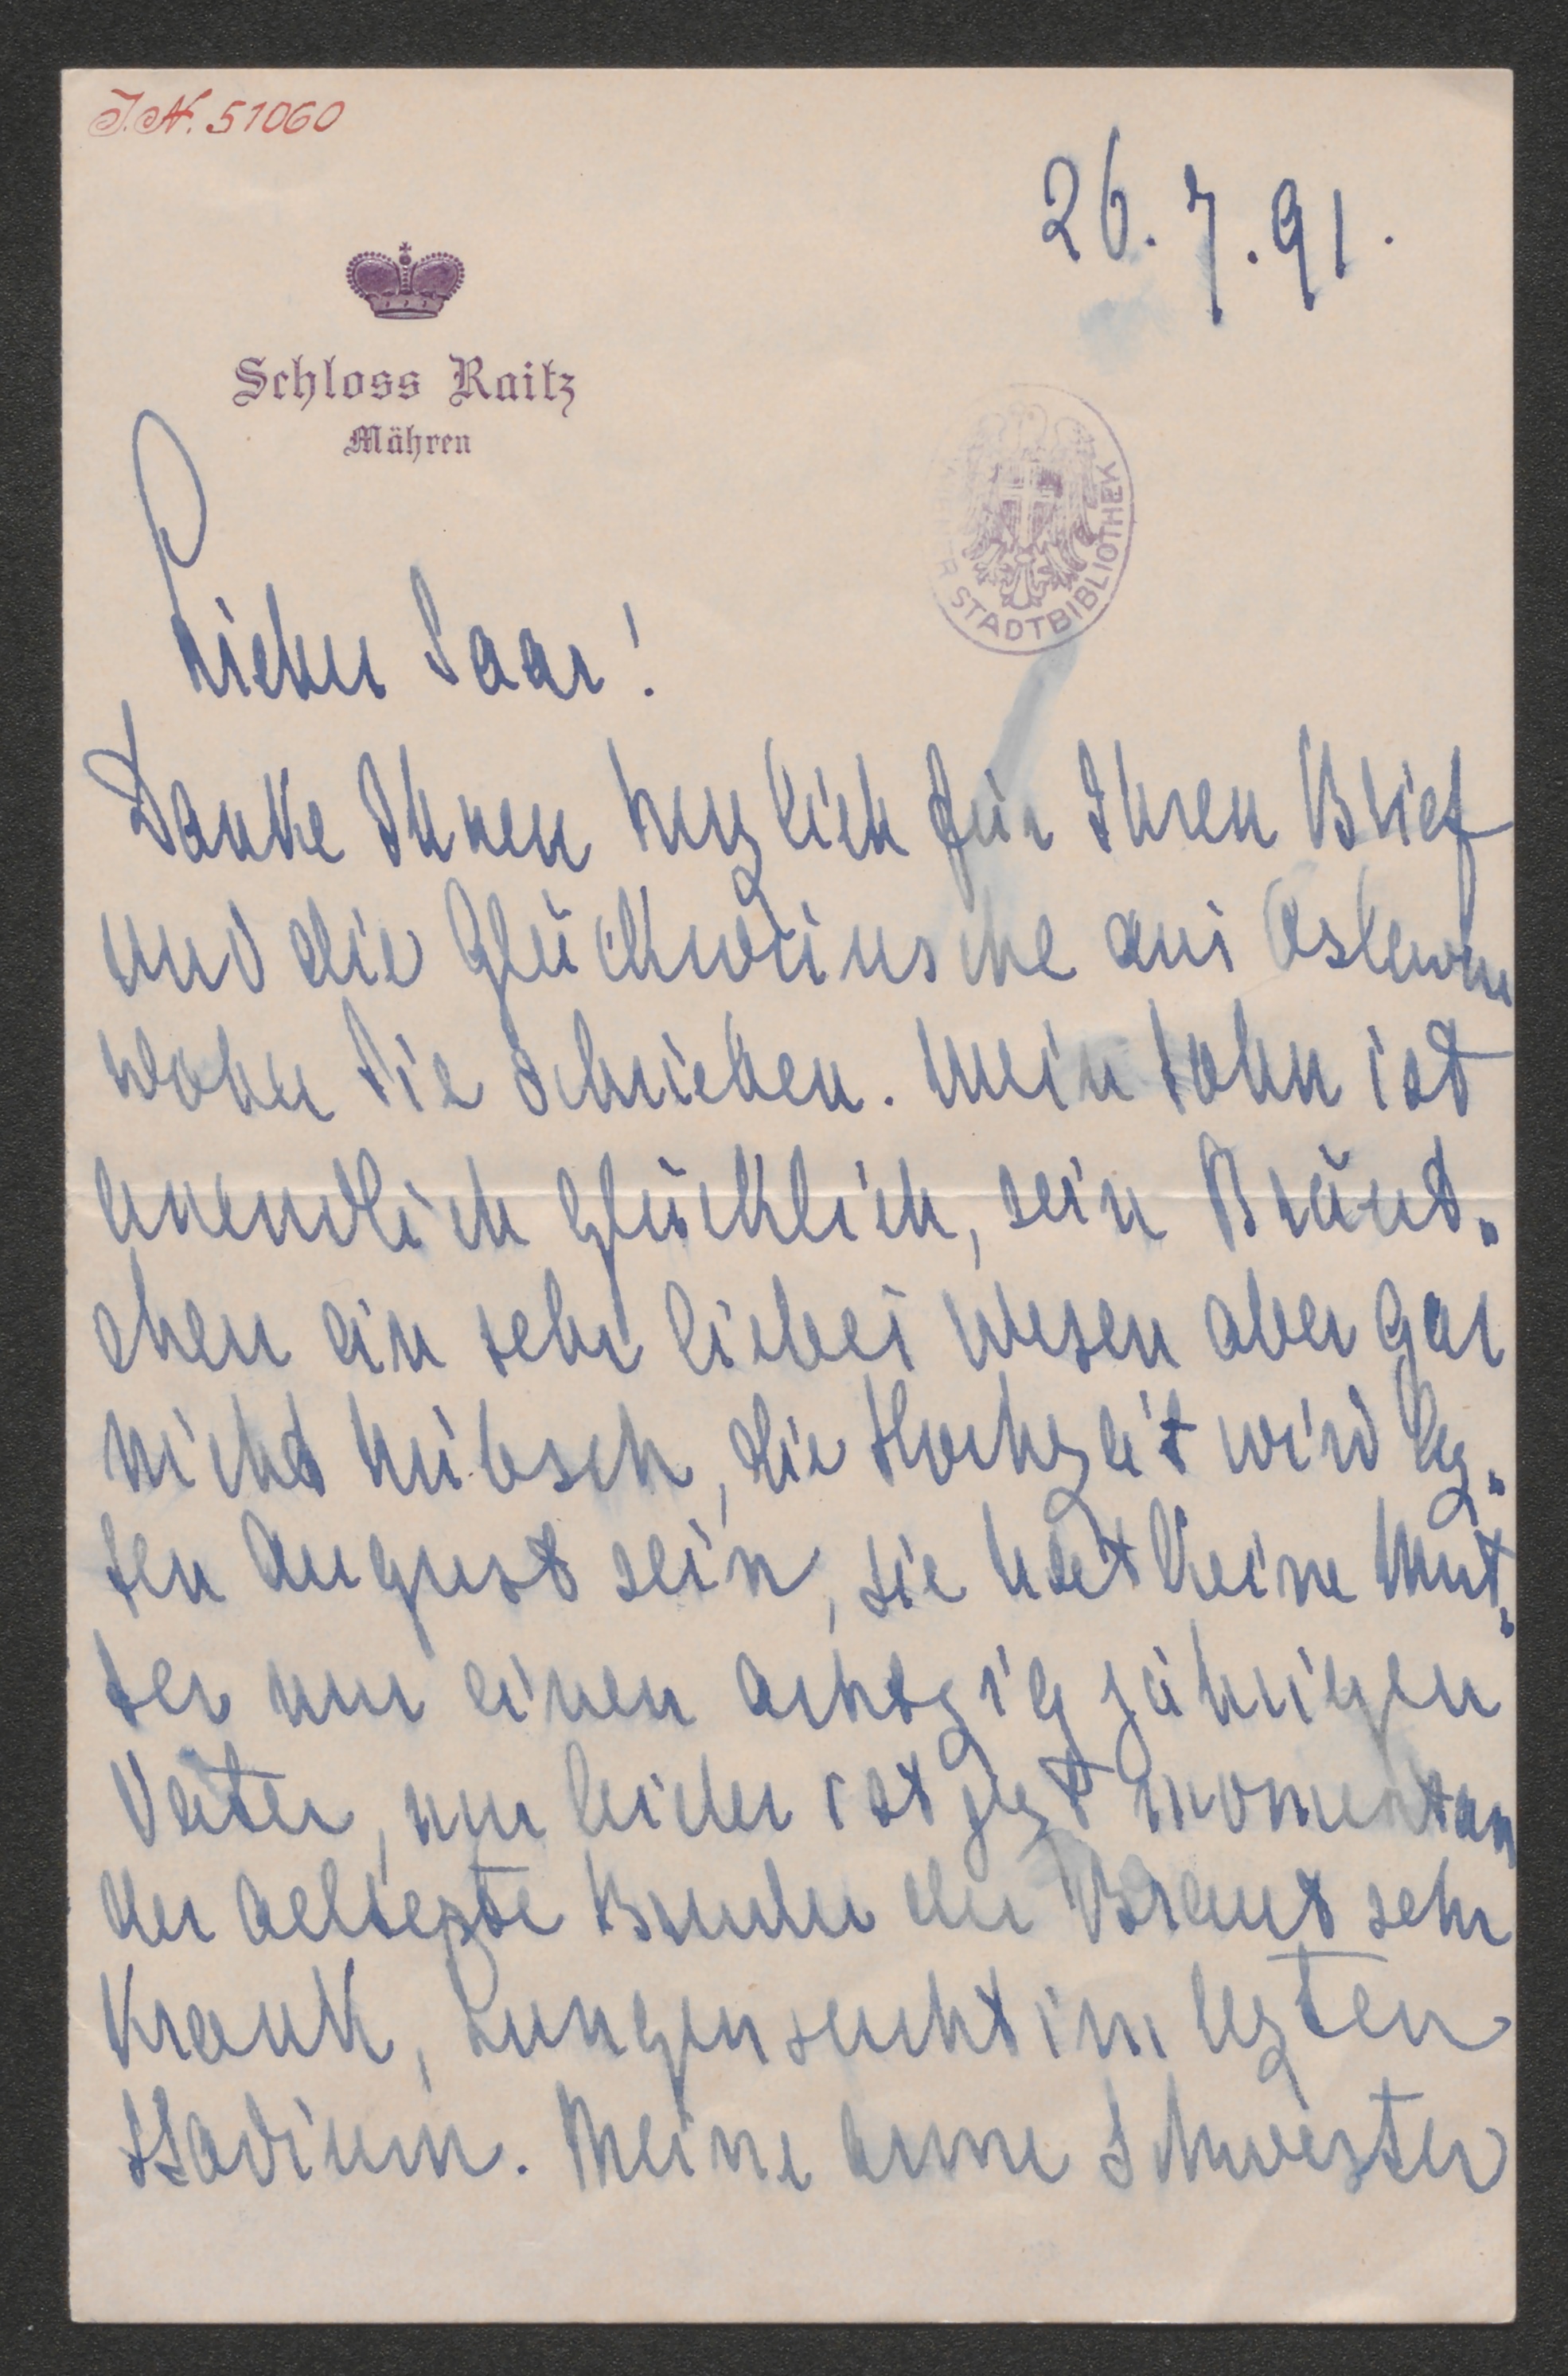 J.N. 51060
26. 7. 91.
Schloss Raitz
Mähren
STADTBIBLIOTHEK
Lieber Saar!
Danke Ihnen herzlich für Ihren Brief
und die Glückwünsche aus
woher Sie schrieben. Mein Sohn ist
unendlich glücklich, sein Bräut„
chen ein sehr liebes Wesen aber gar
nicht hübsch, die Hochzeit wird lez„
ten August sein, sie hat keine Mut„
ter nur einen achtzigjährigen
Vater, nur leider ist jezt momentan
der aelteste Bruder der Braut sehr
Krank, Lungensucht im lezten
Stadium. Meine arme Schwester